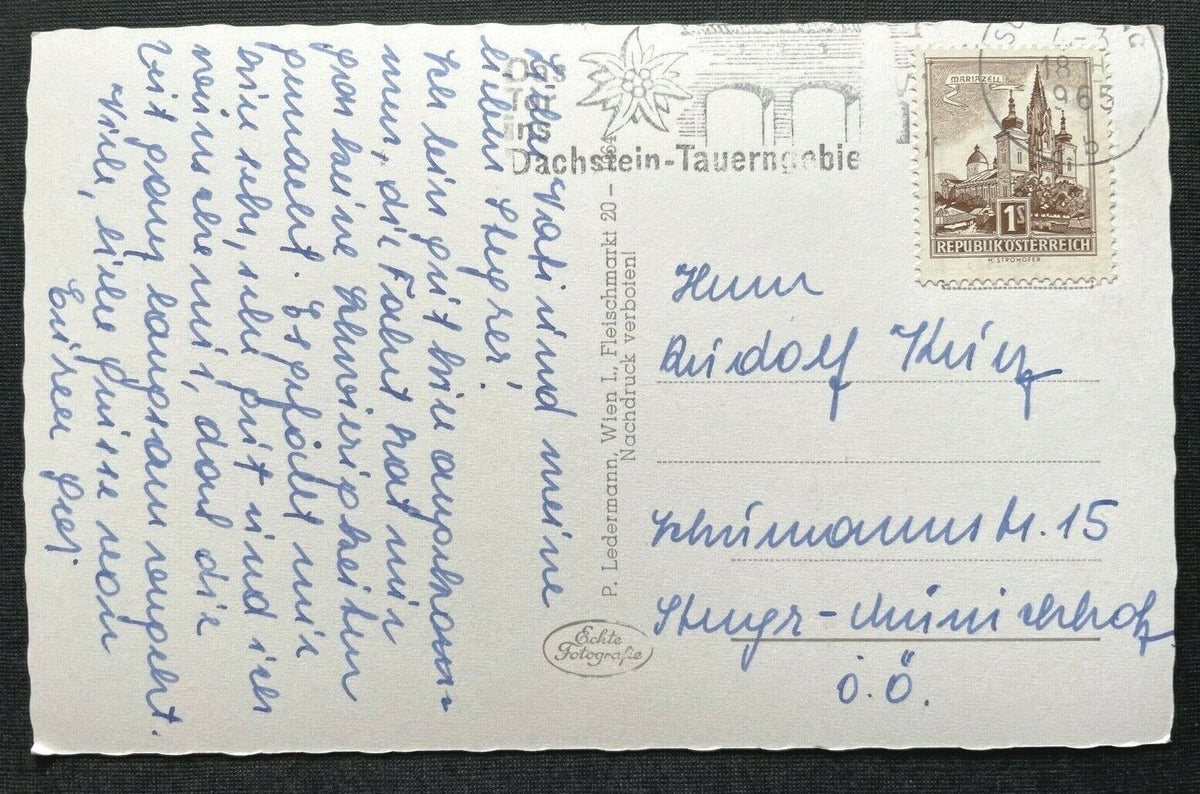 Liebe Vati und meine
lieben Steyrer!
Ich bin gut hier angekom-
men, die Fahrt hat mir
gar keine Schwierigkeiten
gemacht. Es gefällt mir
hier sehr, sehr gut und ich
wünsche mir, daß die
Zeit ganz langsam vergeht.
Viele, viele Grüsse von
Eurer
Das
Tor
ins
Dachstein-Tauerngebie
18 H
1965
MARIAZELL
1S
REPUBLIK ÖSTERREICH
H. STROHOFER
P. Ledermann, Wien I., Fleischmarkt 20 –
Nachdruck verboten!
Echte
Fotografie
Herrn
Rudolf Kunz
Schumannstr. 15
Steyr-Münichholz
O.Ö.